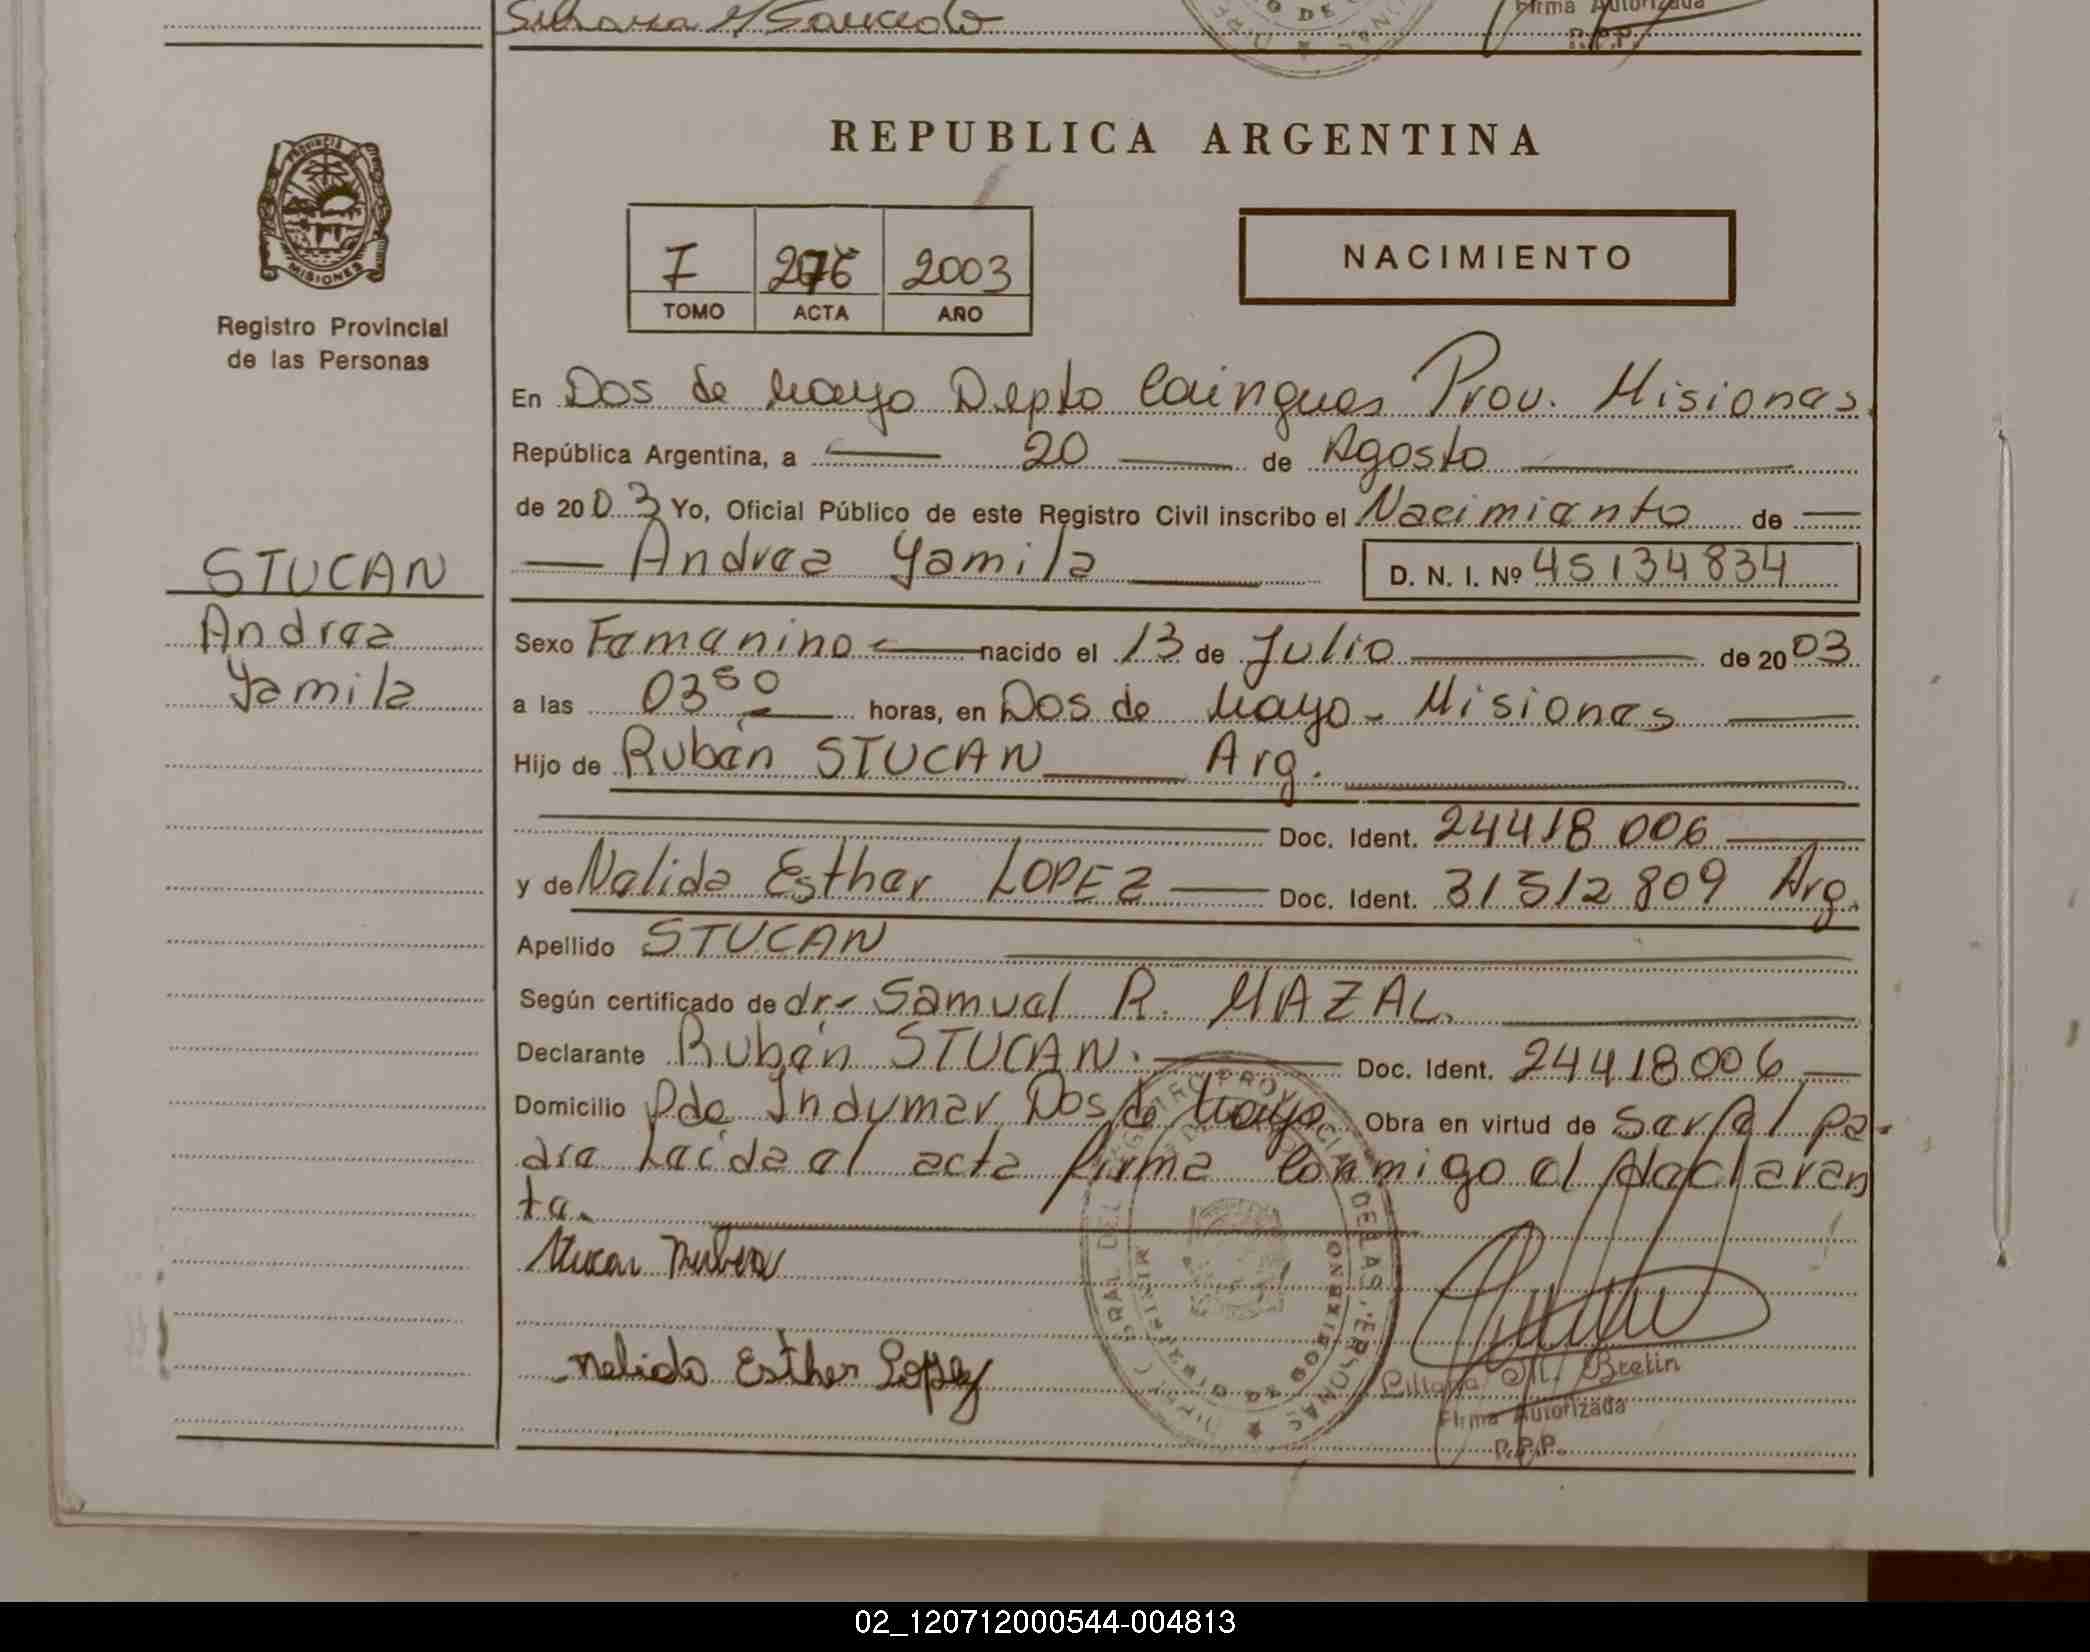 Silvana M Saucedo
Firma Autorizada
R.P.P.
REPUBLICA ARGENTINA
PROVINCIA DE
MISIONES
Registro Provincial
de las Personas
I 276 2003
TOMO ACTA AÑO
NACIMIENTO
En Dos de Mayo Depto Cainguas Prov. Misiones.
República Argentina, a 20 de Agosto
de 2003 Yo, Oficial Público de este Registro Civil inscribo el Nacimiento de
Andrea Yamila D. N. I. Nº 45134834
STUCAN
Andrea
Yamila
Sexo Femenino nacido el 13 de Julio de 2003
a las 03 50 horas, en Dos de Mayo - Misiones
Hijo de Rubén STUCAN Arg.
Doc. Ident. 24418006
y de Nelida Esther LOPEZ Doc. Ident. 31312809 Arg.
Apellido STUCAN
Según certificado de dr.- Samuel R. MAZAL.
Declarante Rubén STUCAN. Doc. Ident. 24418006
Domicilio Pde Indumar Dos de Mayo Obra en virtud de ser el pa-
dre Leída el acta firma conmigo el declaran
te.
Stucan Ruben
Nelida Esther Lopez
Liliana M. Bretin
Firma Autorizada
R.P.P.
02_120712000544-004813